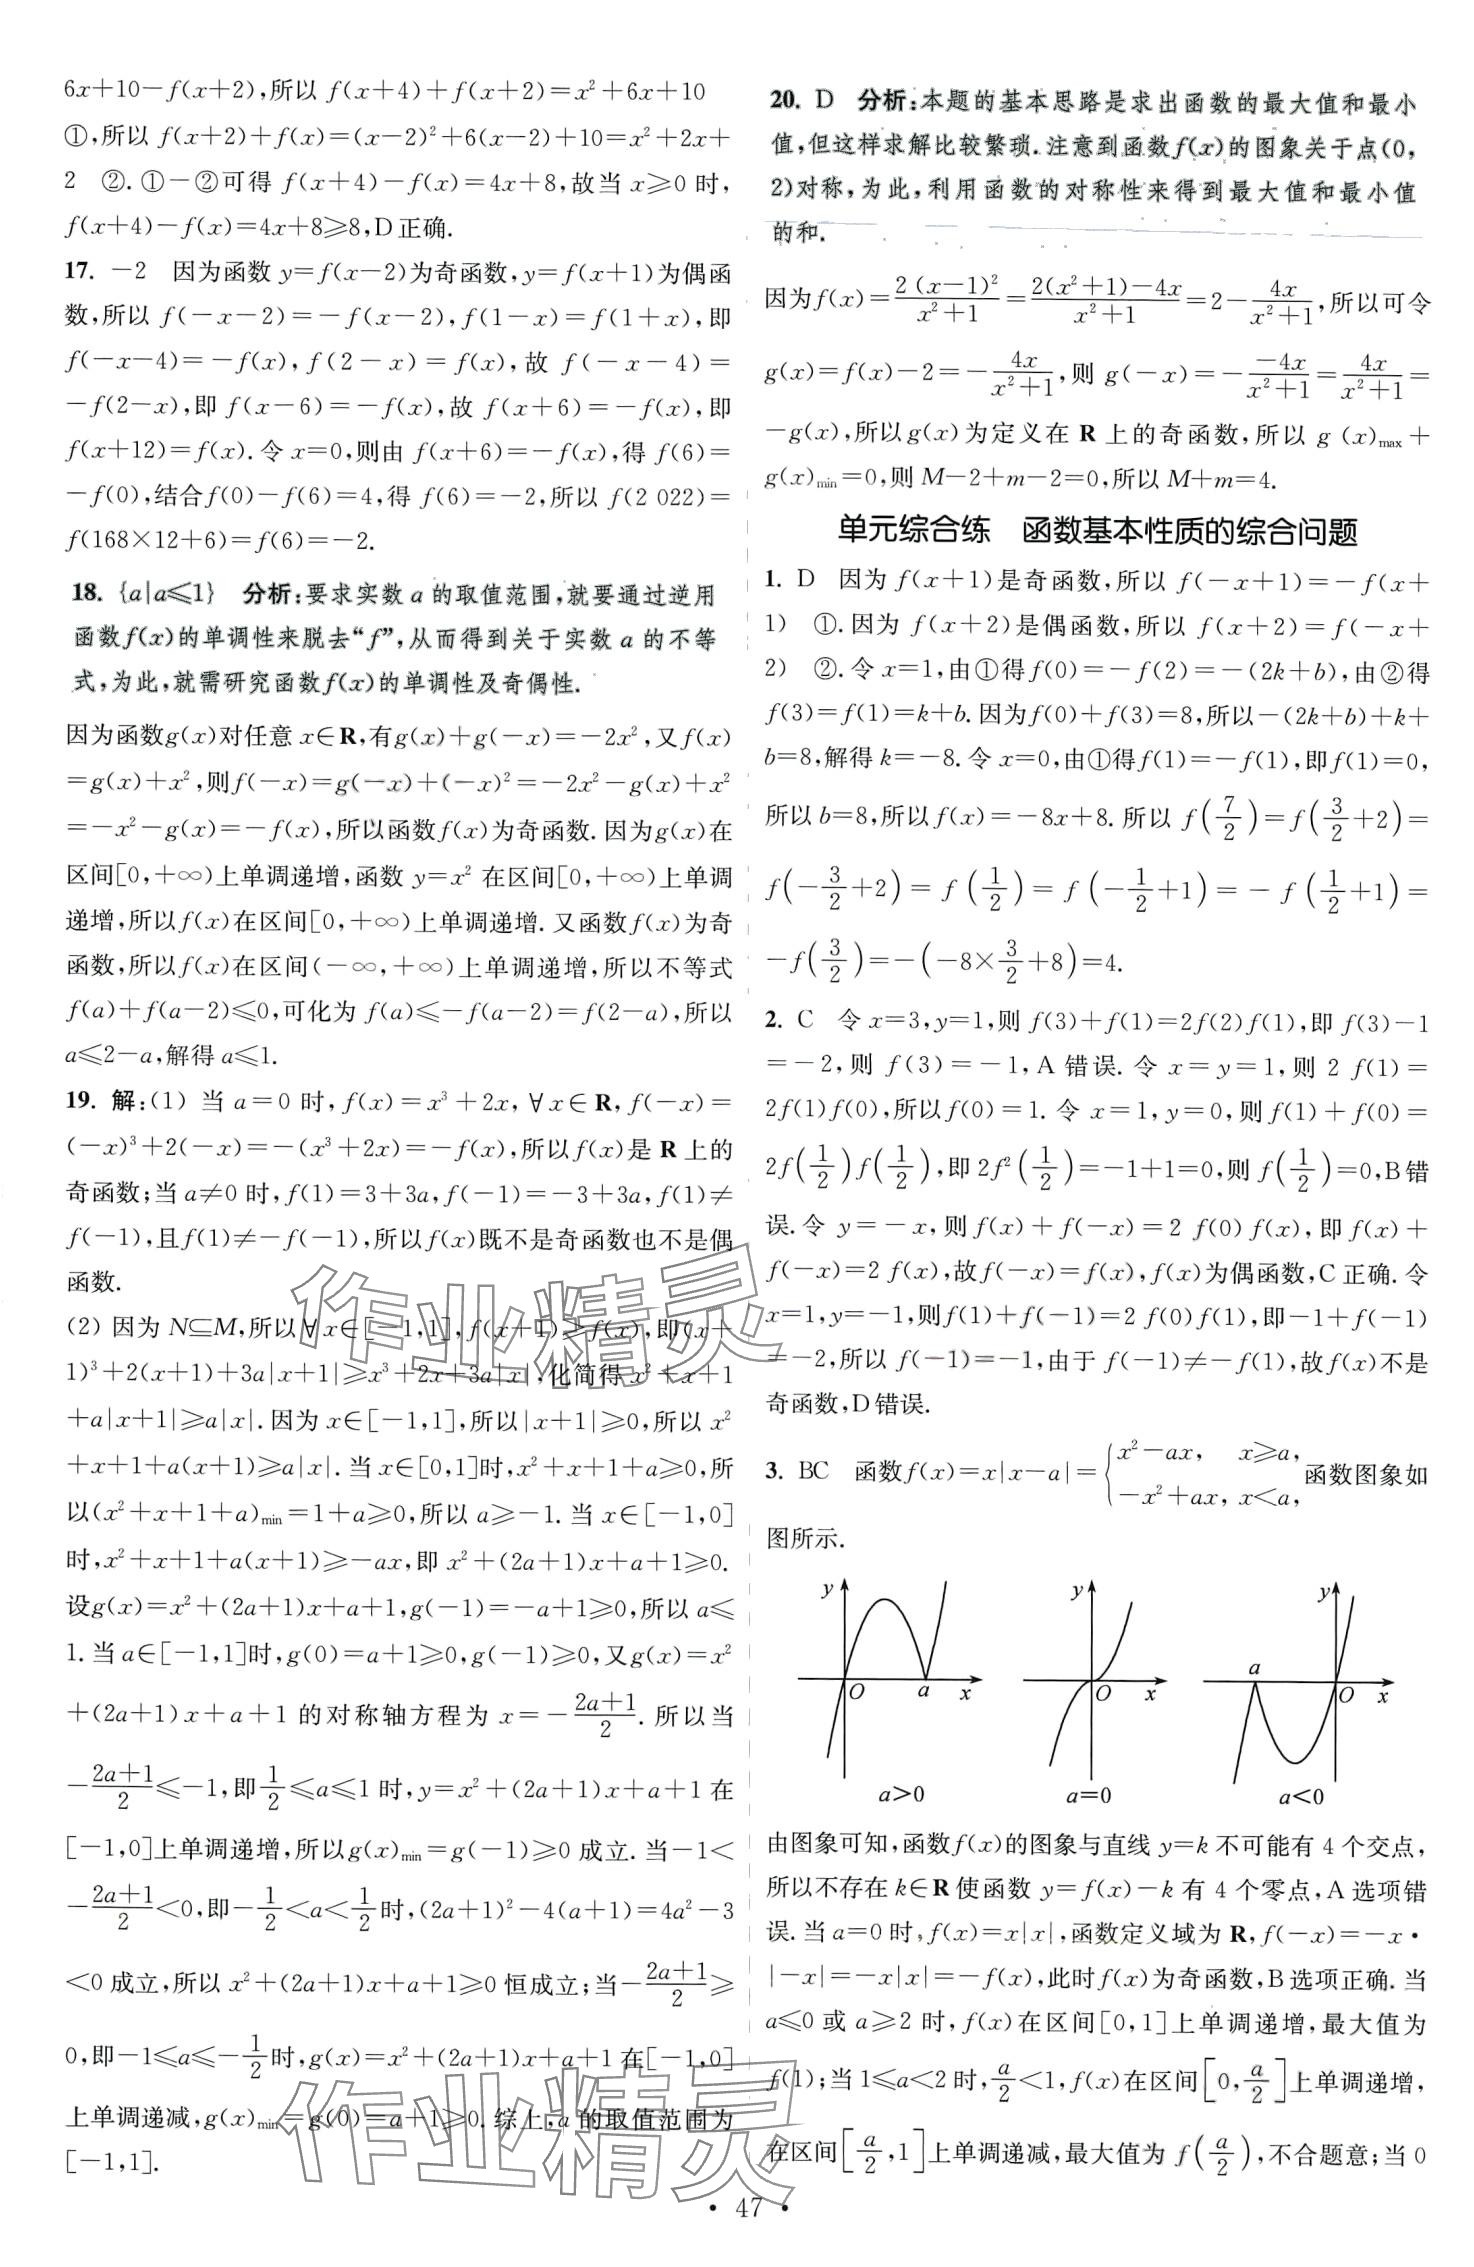 6x+10-f(x+2),所以 f(x+4)+f(x+2)=x²+6x+10
①,所以 f(x+2)+f(x)=(x-2)²+6(x-2)+10=x²+2x+
2 ②.①-②可得 f(x+4)-f(x)=4x+8,故当 x⩾0 时,
f(x+4)-f(x)=4x+8⩾8,D正确.
17. -2 因为函数 y=f(x-2)为奇函数,y=f(x+1)为偶函
数,所以 f(-x-2)=-f(x-2),f(1-x)=f(1+x),即
f(-x-4)=-f(x),f(2-x)=f(x),故 f(-x-4)=
-f(2-x),即 f(x-6)=-f(x),故 f(x+6)=-f(x),即
f(x+12)=f(x).令 x=0,则由 f(x+6)=-f(x),得 f(6)=
-f(0),结合f(0)-f(6)=4,得 f(6)=-2,所以 f(2 022)=
f(168×12+6)=f(6)=-2.
18. {a|a⩽1} 分析:要求实数 a 的取值范围,就要通过逆用
函数f(x)的单调性来脱去“f”,从而得到关于实数 a 的不等
式,为此,就需研究函数f(x)的单调性及奇偶性.
因为函数g(x)对任意 x∈R,有g(x)+g(-x)=-2x²,又f(x)
=g(x)+x²,则f(-x)=g(-x)+(-x)²=-2x²-g(x)+x²
=-x²-g(x)=-f(x),所以函数f(x)为奇函数.因为g(x)在
区间[0,+∞)上单调递增,函数 y=x² 在区间[0,+∞)上单调
递增,所以f(x)在区间[0,+∞)上单调递增.又函数f(x)为奇
函数,所以f(x)在区间(-∞,+∞)上单调递增,所以不等式
f(a)+f(a-2)⩽0,可化为 f(a)⩽-f(a-2)=f(2-a),所以
a⩽2-a,解得 a⩽1.
19. 解:(1) 当 a=0 时,f(x)=x³+2x,∀x∈R,f(-x)=
(-x)³+2(-x)=-(x³+2x)=-f(x),所以f(x)是 R 上的
奇函数;当 a≠0 时,f(1)=3+3a,f(-1)=-3+3a,f(1)≠
f(-1),且f(1)≠-f(-1),所以f(x)既不是奇函数也不是偶
函数.
(2) 因为 N⊆M,所以∀x∈[-1,1],f(x+1)⩾f(x),即(x+
1)³+2(x+1)+3a|x+1|⩾x³+2x+3a|x|,化简得 x²+x+1
+a|x+1|⩾a|x|.因为 x∈[-1,1],所以|x+1|⩾0,所以 x²
+x+1+a(x+1)⩾a|x|.当x∈[0,1]时,x²+x+1+a⩾0,所
以(x²+x+1+a)min=1+a⩾0,所以 a⩾-1.当 x∈[-1,0]
时,x²+x+1+a(x+1)⩾-ax,即 x²+(2a+1)x+a+1⩾0.
设g(x)=x²+(2a+1)x+a+1,g(-1)=-a+1⩾0,所以 a⩽
1.当 a∈[-1,1]时,g(0)=a+1⩾0,g(-1)⩾0,又g(x)=x²
+(2a+1)x+a+1 的对称轴方程为 x=-\frac{2a+1}{2}.所以当
-\frac{2a+1}{2}⩽-1,即\frac{1}{2}⩽a⩽1 时,y=x²+(2a+1)x+a+1 在
[-1,0]上单调递增,所以g(x)min=g(-1)⩾0 成立.当-1<
-\frac{2a+1}{2}<0,即-\frac{1}{2}<a<\frac{1}{2}时,(2a+1)²-4(a+1)=4a²-3
<0 成立,所以 x²+(2a+1)x+a+1⩾0 恒成立;当-\frac{2a+1}{2}⩾
0,即-1⩽a⩽-\frac{1}{2}时,g(x)=x²+(2a+1)x+a+1在[-1,0]
上单调递减,g(x)min=g(0)=a+1⩾0.综上,a的取值范围为
[-1,1].
20. D 分析:本题的基本思路是求出函数的最大值和最小
值,但这样求解比较繁琐.注意到函数f(x)的图象关于点(0,
2)对称,为此,利用函数的对称性来得到最大值和最小值
的和.
因为f(x)=\frac{2(x-1)²}{x²+1}=\frac{2(x²+1)-4x}{x²+1}=2-\frac{4x}{x²+1},所以可令
g(x)=f(x)-2=-\frac{4x}{x²+1},则 g(-x)=-\frac{-4x}{x²+1}=\frac{4x}{x²+1}=
-g(x),所以g(x)为定义在 R 上的奇函数,所以 g(x)max+
g(x)min=0,则 M-2+m-2=0,所以 M+m=4.
单元综合练 函数基本性质的综合问题
1. D 因为 f(x+1)是奇函数,所以 f(-x+1)=-f(x+
1) ①.因为 f(x+2)是偶函数,所以 f(x+2)=f(-x+
2) ②.令 x=1,由①得f(0)=-f(2)=-(2k+b),由②得
f(3)=f(1)=k+b.因为f(0)+f(3)=8,所以-(2k+b)+k+
b=8,解得 k=-8.令 x=0,由①得f(1)=-f(1),即f(1)=0,
所以 b=8,所以f(x)=-8x+8.所以 f(\frac{7}{2})=f(\frac{3}{2}+2)=
f(-\frac{3}{2}+2)=f(\frac{1}{2})=f(-\frac{1}{2}+1)=-f(\frac{1}{2}+1)=
-f(\frac{3}{2})=-(-8×\frac{3}{2}+8)=4.
2. C 令 x=3,y=1,则 f(3)+f(1)=2f(2)f(1),即 f(3)-1
=-2,则 f(3)=-1,A 错误.令 x=y=1,则 2 f(1)=
2f(1)f(0),所以f(0)=1.令 x=1,y=0,则f(1)+f(0)=
2f(\frac{1}{2})f(\frac{1}{2}),即 2f²(\frac{1}{2})=-1+1=0,则 f(\frac{1}{2})=0,B错
误.令 y=-x,则 f(x)+f(-x)=2 f(0) f(x),即 f(x)+
f(-x)=2 f(x),故f(-x)=f(x),f(x)为偶函数,C正确.令
x=1,y=-1,则f(1)+f(-1)=2 f(0)f(1),即-1+f(-1)
=-2,所以 f(-1)=-1,由于 f(-1)≠-f(1),故f(x)不是
奇函数,D错误.
3. BC 函数f(x)=x|x-a|={x²-ax, x⩾a, -x²+ax, x<a, 函数图象如
图所示.
y O a x a>0
y O x a=0
y a O x a<0
由图象可知,函数f(x)的图象与直线 y=k 不可能有 4 个交点,
所以不存在 k∈R 使函数 y=f(x)-k 有 4 个零点,A选项错
误.当 a=0 时,f(x)=x|x|,函数定义域为 R,f(-x)=-x·
|-x|=-x|x|=-f(x),此时f(x)为奇函数,B选项正确.当
a⩽0 或 a⩾2 时,f(x)在区间[0,1]上单调递增,最大值为
f(1);当1⩽a<2时,\frac{a}{2}<1,f(x)在区间[0,\frac{a}{2}]上单调递增,
在区间[\frac{a}{2},1]上单调递减,最大值为 f(\frac{a}{2}),不合题意;当 0
· 47 ·
作业精灵
作业精灵